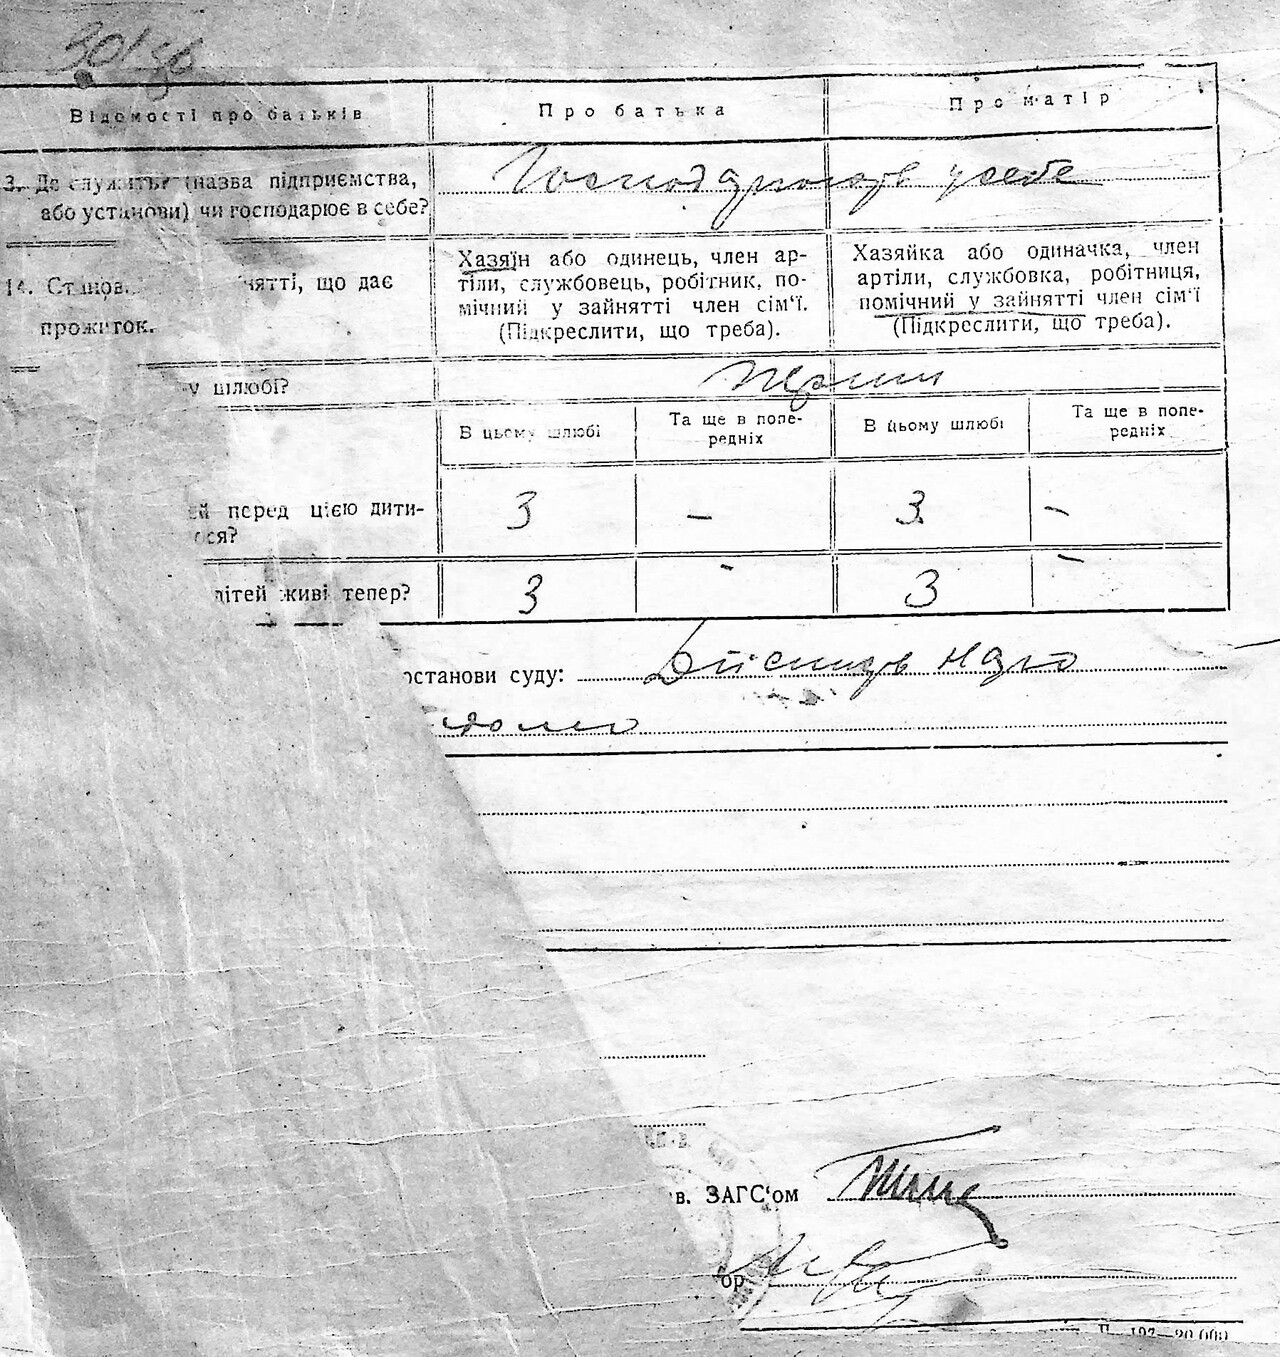 Відомості про батьків
Про батька
Про матір
3. Де служить? (назва підприємства,
або установи) чи господарює в себе?
Господарюють у себе
14. Станов нятті, що дає
прожиток.
Хазяїн або одинець, член ар-
тіли, службовець, робітник, по-
мічний у зайнятті член сім'ї.
(Підкреслити, що треба).
Хазяйка або одиначка, член
артіли, службовка, робітниця,
помічний у зайнятті член сім'ї
(Підкреслити, що треба).
у шлюбі?
В цьому шлюбі
Та ще в попе-
редніх
В цьому шлюбі
Та ще в попе-
редніх
ей перед цією дити-
ося?
3
–
3
–
дітей живі тепер?
3
-
3
–
останови суду:
в. ЗАГС'ом
ор